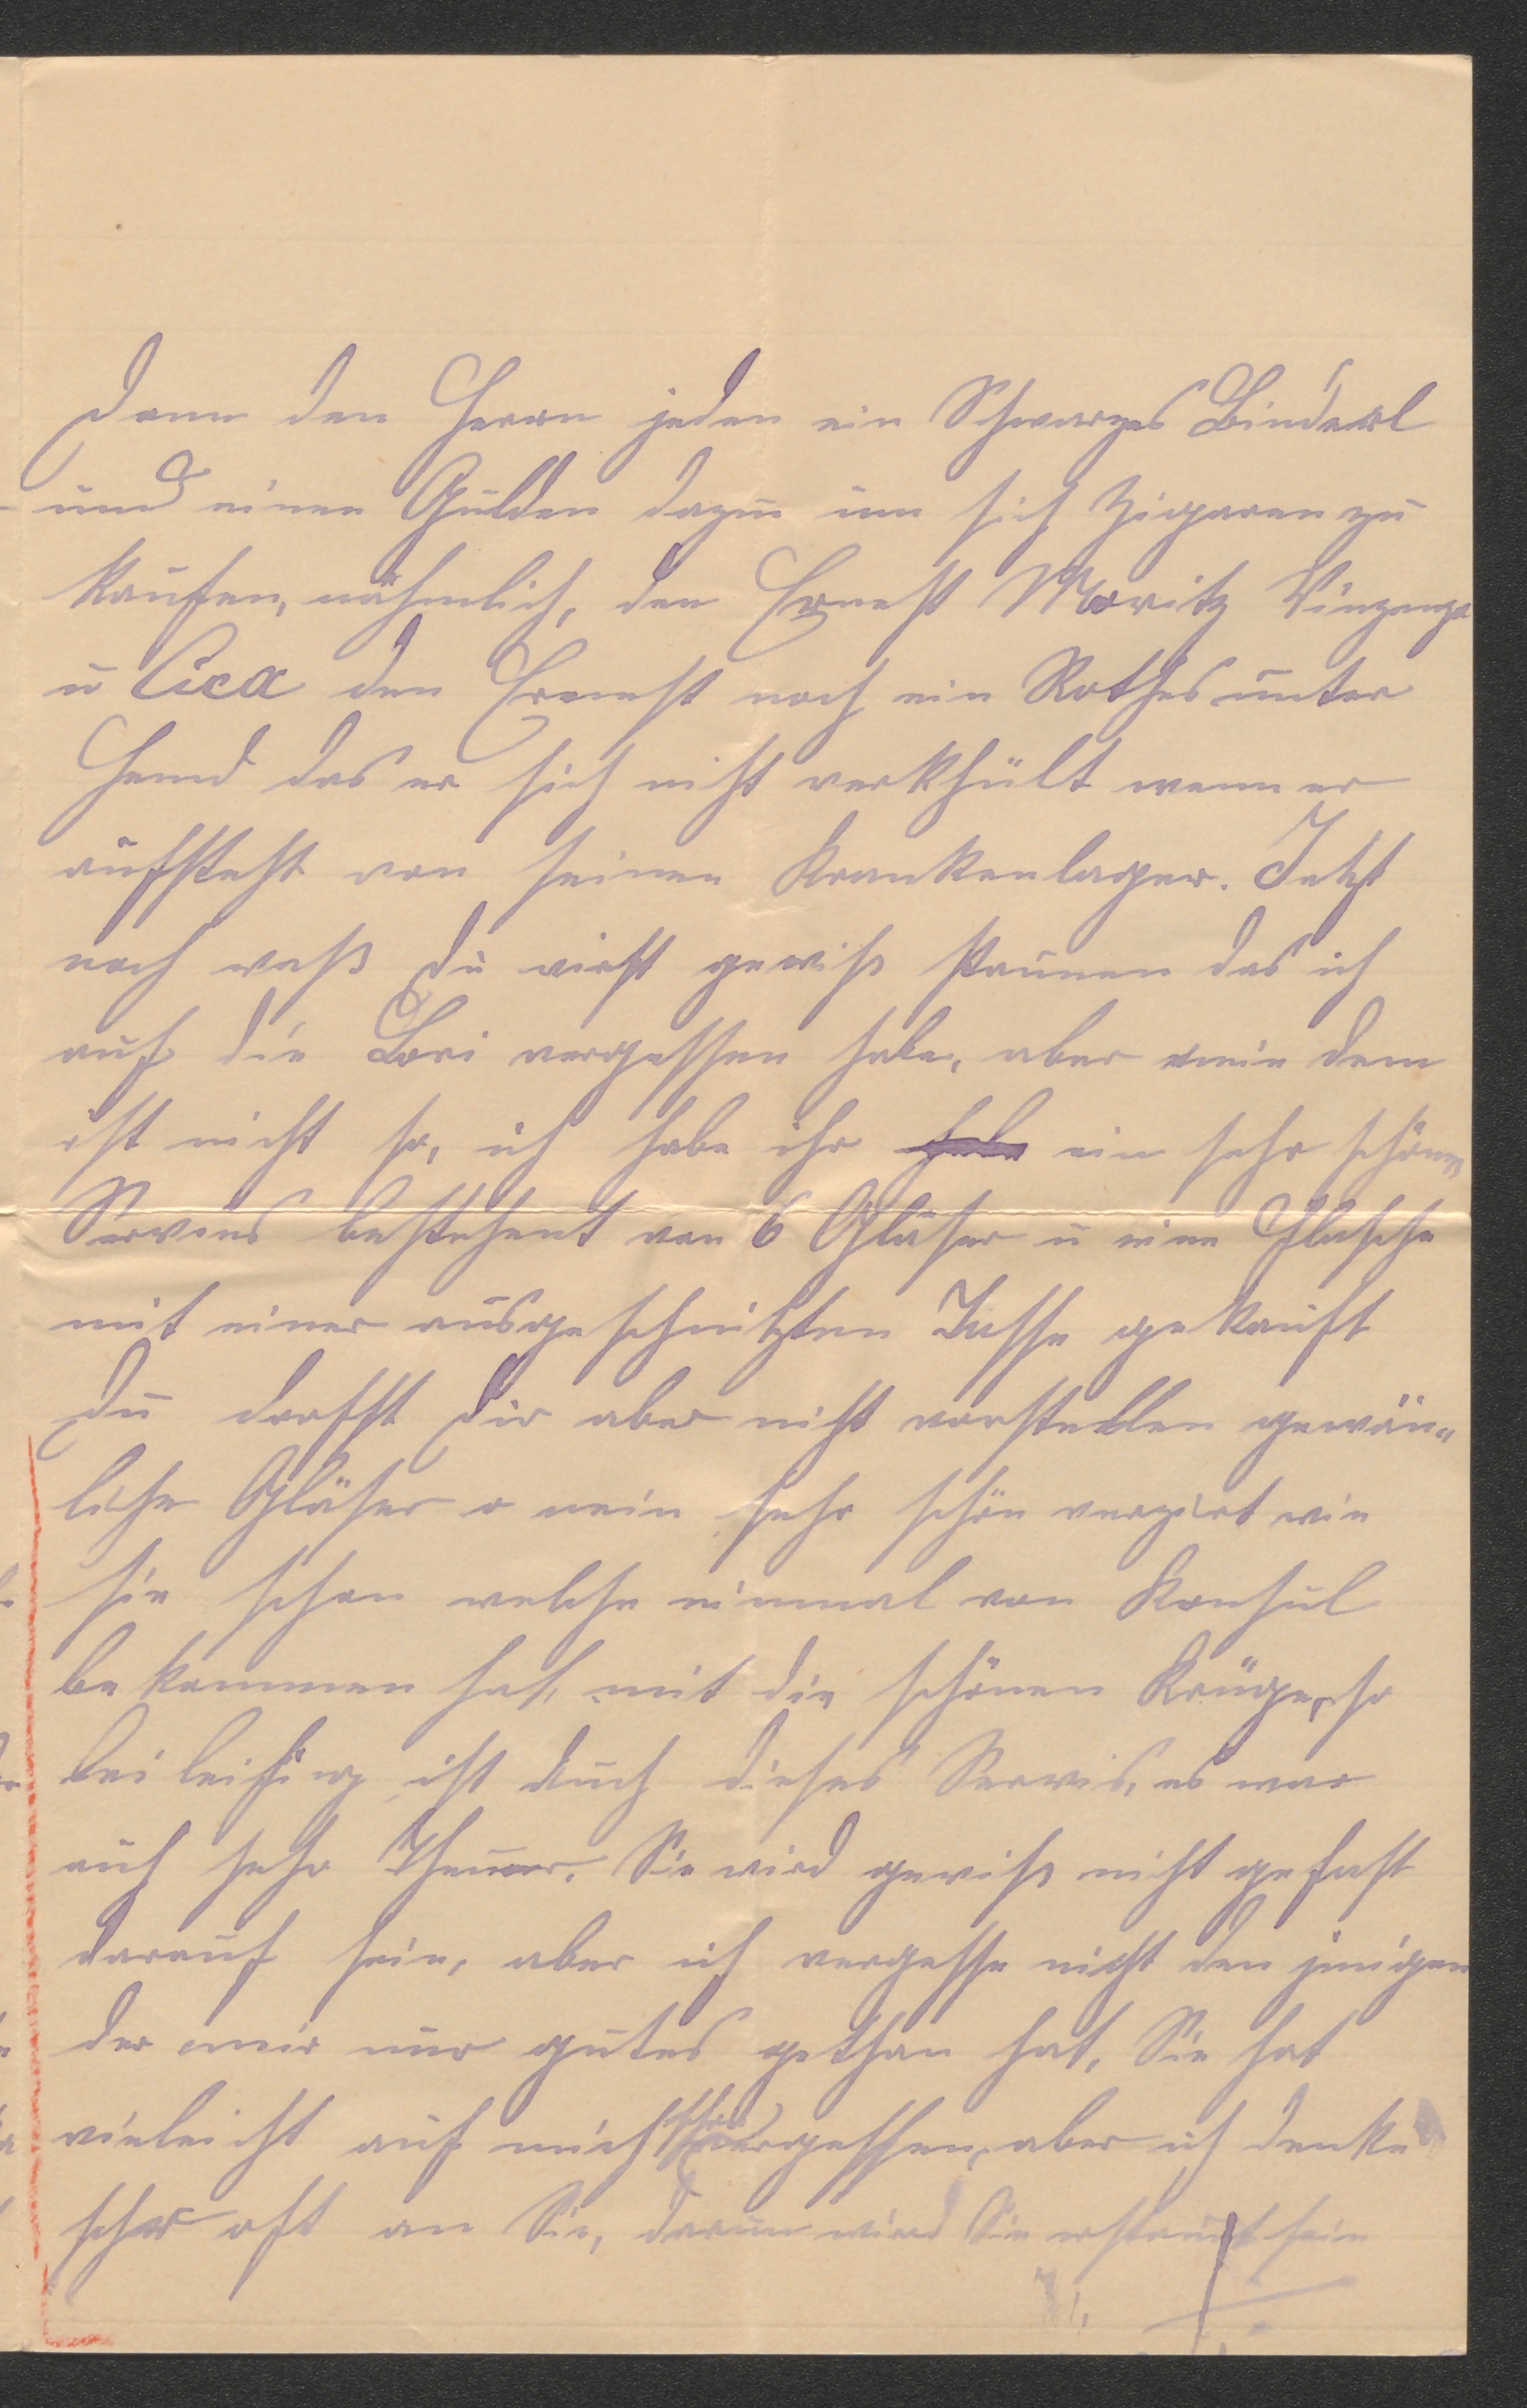 Dann den Herrn jeden ein Schwarzes Binderl
und einen Gulden dazu um sich Zigaren zu
kaufen, nähmlich, den Ernest Moritz Vinzenz
u Cica den Ernest noch ein Rothes unter
Hemd das er sich nicht verkhült wenn er
aufsteht von seinen Krankenlager. Jetzt
noch waß Du wirst gewiß staunen das ich
auf die Lori vergessen habe, aber nein dem
ist nicht so, ich habe ihr ein sehr schönes
Servies bestehent von 6 Gläser u eine Flasche
mit einer ausgeschnitzten Tasse gekauft
Du darfst Dir aber nicht vorstellen gewön„
liche Gläser o nein sehr schön verzirt wie
sie schon welche einmal von Konsul
bekommen hat, mit die schönen Krüge, so
beileifig ist auch dieses Servis, es war
auch sehr Theuer. Sie wird gewiß nicht gefast
darauf sein, aber ich vergesse nicht den jenigen
der mir nur gutes gethan hat, Sie hat
vieleicht auf mich schon vergessen, aber ich denke
sehr oft an Sie, darum wird Sie erstaunt sein